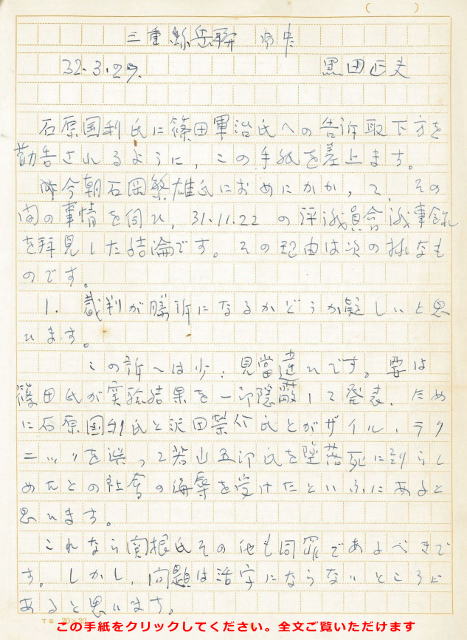 三重縣岳聯 御中
32.3.29. 黒田正夫
石原国利氏に篠田軍治氏への告訴取下方を
勧告されるように、この手紙を差上ます。
昨今朝石岡繁雄氏におめにかかって、その
間の事情を伺ひ、31.11.22の評議員会議事録
を拝見した結論です。その理由は次の様なも
のです。
1. 裁判が勝訴になるかどうか疑しいと思
ひます。
この訴へは少々見當違ひです。要は
篠田氏が実験結果を一部隠蔽して発表、ため
に石原国利氏と沢田榮介氏とがザイル、テク
ニックを誤って若山五朗氏を墜落死に到らし
めたとの社会の侮辱を受けたといふにあると
思ひます。
これなら関根氏その他も同罪であるべきで
す。しかし、問題は活字にならないところに
あると思います。
この手紙をクリックしてください。全文ご覧いただけます